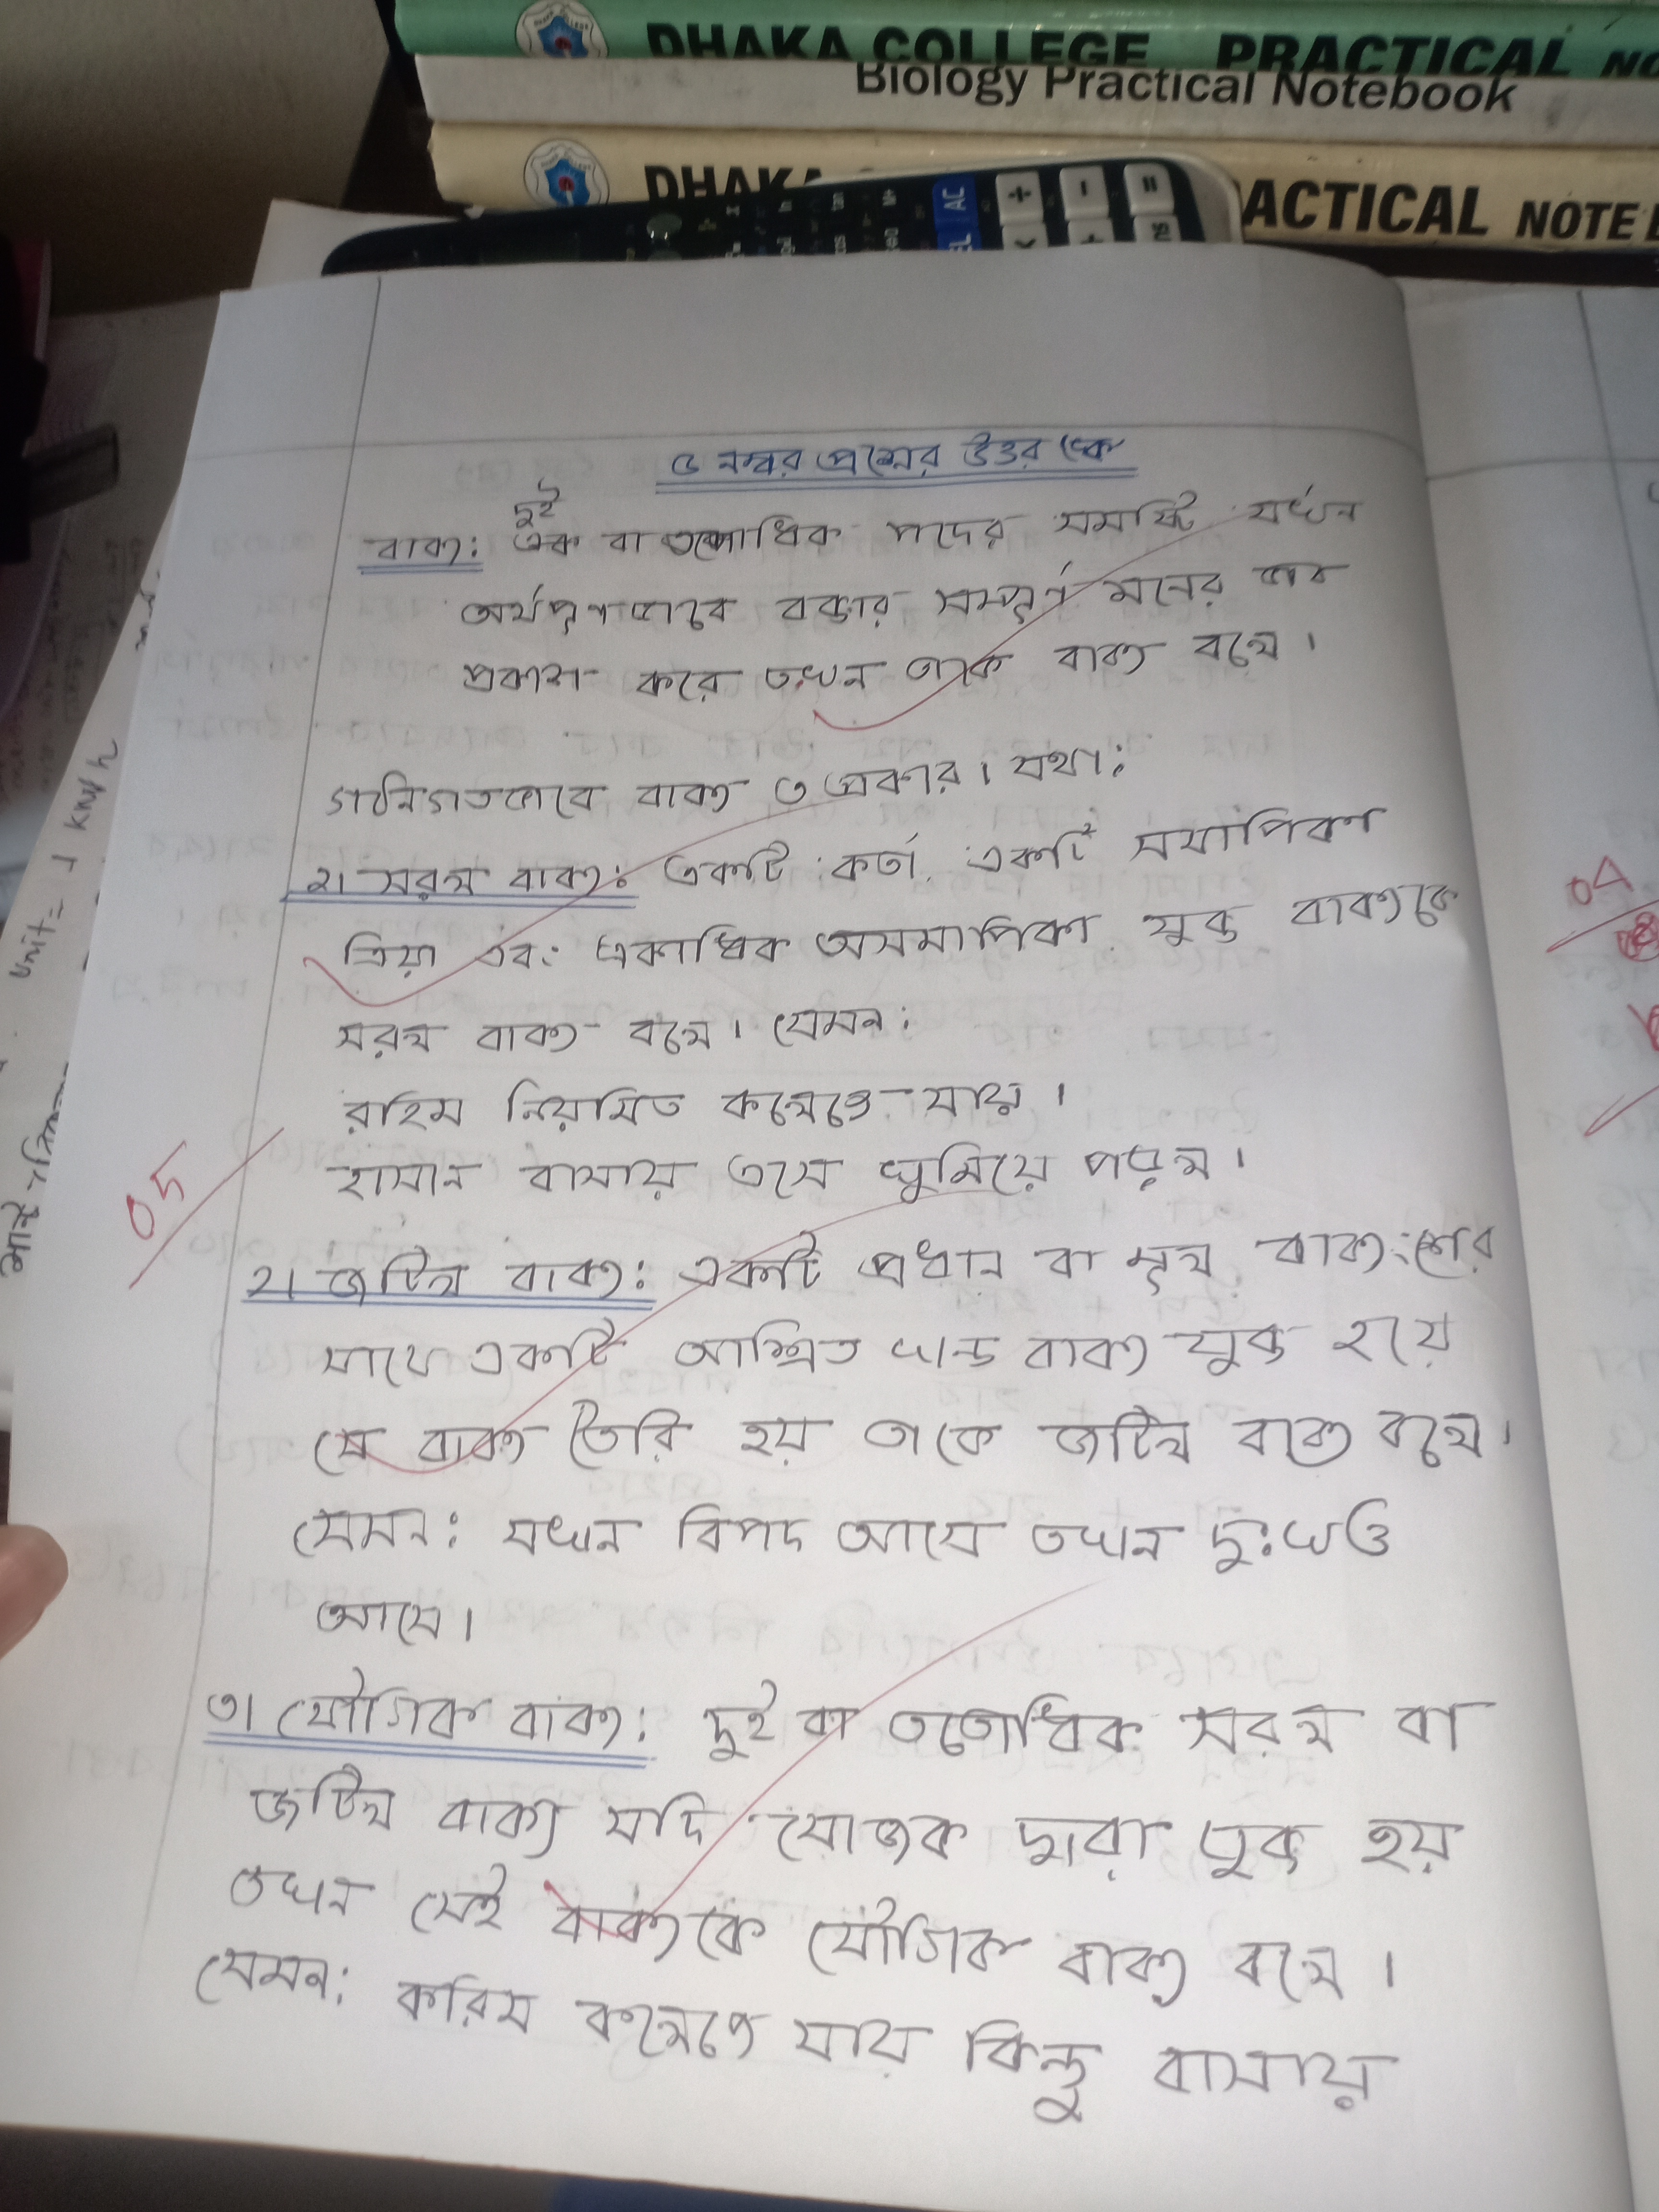 DHAKA COLLEGE PRACTICAL NO
Biology Practical Notebook
DHAKA
ACTICAL NOTE B
AC
৫ নম্বর প্রশ্নের উত্তর
দুই
বাক্য: এক বা ততোধিক পদের সমষ্টি যখন
অর্থপূর্ণভাবে বক্তার সম্পূর্ণ মনের ভাব
প্রকাশ করে তখন তাকে বাক্য বলে।
গঠনগতভাবে বাক্য ৩ প্রকার। যথা:
১। সরল বাক্য: একটি কর্তা, একটি সমাপিকা
ক্রিয়া এবং একাধিক অসমাপিকা যুক্ত বাক্যকে
সরল বাক্য বলে। যেমন:
রহিম নিয়মিত কলেজে যায়।
হাসান বাসায় এসে ঘুমিয়ে পড়ল।
05
04
২। জটিল বাক্য: একটি প্রধান বা মূল বাক্যংশের
সাথে একটি আশ্রিত খন্ড বাক্য যুক্ত হয়ে
যে বাক্য তৈরি হয় তাকে জটিল বাক্য বলে।
যেমন: যখন বিপদ আসে তখন দু:খও
আসে।
৩। যৌগিক বাক্য: দুই বা ততোধিক সরল বা
জটিল বাক্য যদি যোজক দ্বারা যুক্ত হয়
তখন সেই বাক্যকে যৌগিক বাক্য বলে।
যেমন: করিম কলেজে যায় কিন্তু বাসায়
unit = 1 kWh